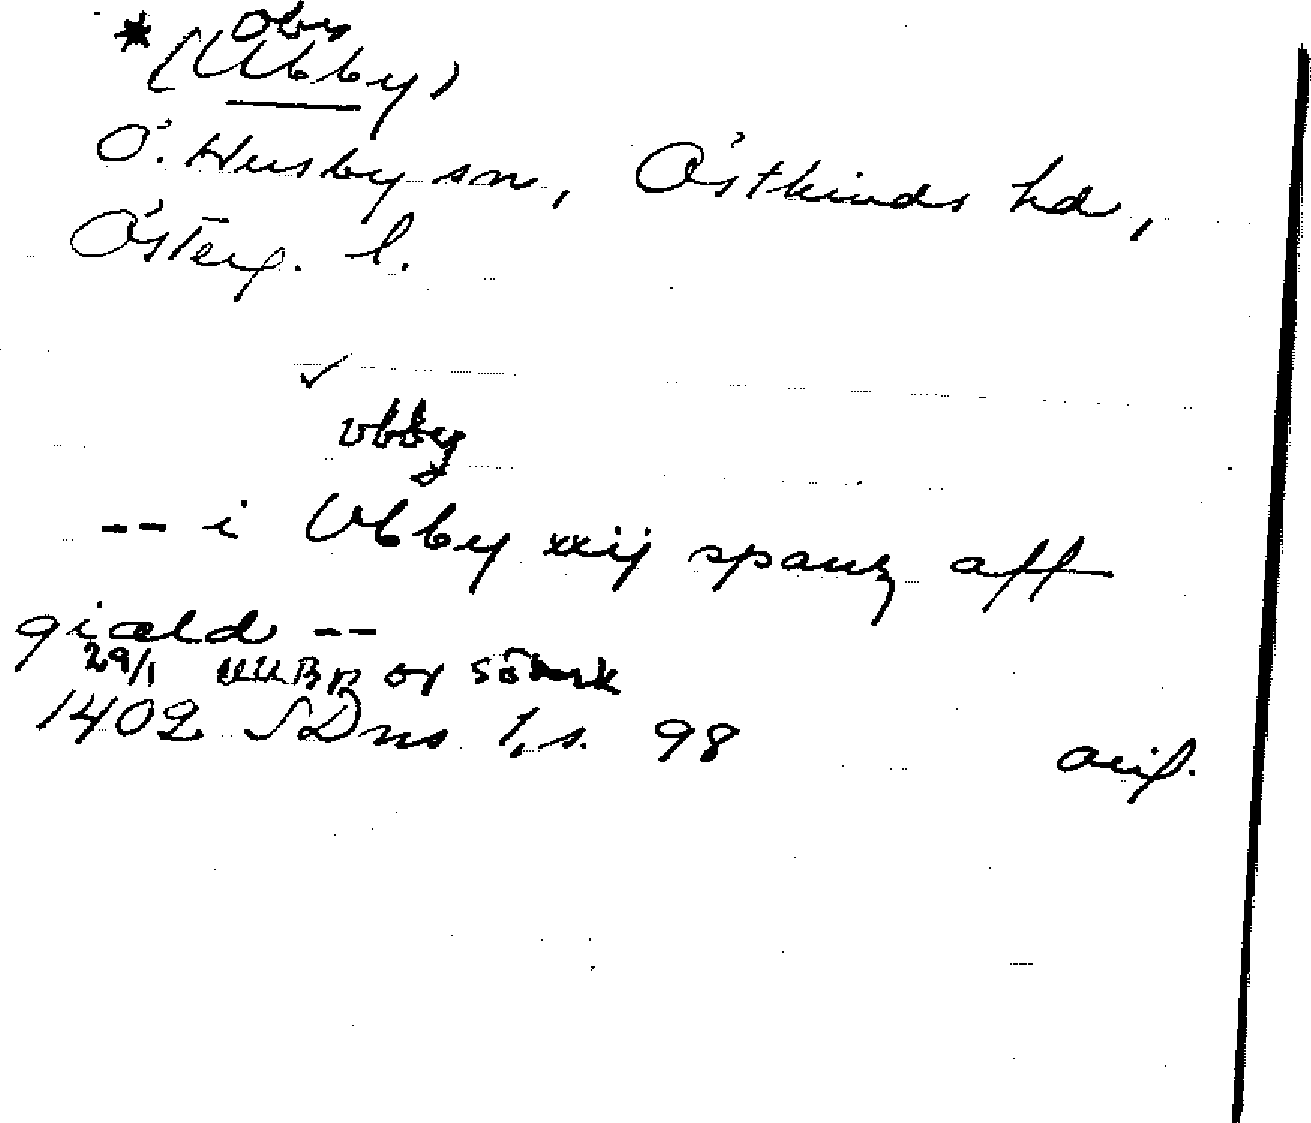 * obs
(Ubby)
Ö. Husby sn, Östkinds hd,
Österg. l.
✓
vbby
-- i Vbby xxij spanz aff
giæld --
29/1 or
1402 SDns 1, s. 98 avif.